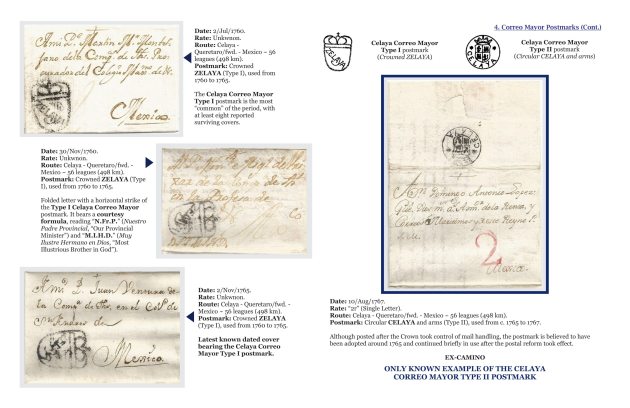 4. Correo Mayor Postmarks (Cont.)
Date: 2/Jul/1760.
Rate: Unkwnon.
Route: Celaya -
Queretaro/fwd. - Mexico ~ 56
leagues (498 km).
Postmark: Crowned
ZELAYA (Type I), used from
1760 to 1765.
The Celaya Correo Mayor
Type I postmark is the most
"common" of the period, with
at least eight reported
surviving covers.
Mexico
Date: 30/Nov/1760.
Rate: Unkwnon.
Route: Celaya - Queretaro/fwd. -
Mexico ~ 56 leagues (498 km).
Postmark: Crowned ZELAYA (Type
I), used from 1760 to 1765.
Folded letter with a horizontal strike of
the Type I Celaya Correo Mayor
postmark. It bears a courtesy
formula, reading "N.Fr.P." (Nuestro
Padre Provincial, "Our Provincial
Minister") and "M.I.H.D." (Muy
Ilustre Hermano en Dios, "Most
Illustrious Brother in God").
Juan Ventura de
Mexico
Date: 2/Nov/1765.
Rate: Unkwnon.
Route: Celaya - Queretaro/fwd. -
Mexico ~ 56 leagues (498 km).
Postmark: Crowned ZELAYA
(Type I), used from 1760 to 1765.
Latest known dated cover
bearing the Celaya Correo
Mayor Type I postmark.
ZELAYA
Celaya Correo Mayor
Type I postmark
(Crowned ZELAYA)
CELAYA
Celaya Correo Mayor
Type II postmark
(Circular CELAYA and arms)
CELAYA
Domingo Antonio Lopez
2
Mexico
Date: 10/Aug/1767.
Rate: "2r" (Single Letter).
Route: Celaya - Queretaro/fwd. - Mexico ~ 56 leagues (498 km).
Postmark: Circular CELAYA and arms (Type II), used from c. 1765 to 1767.
Although posted after the Crown took control of mail handling, the postmark is believed to have
been adopted around 1765 and continued briefly in use after the postal reform took effect.
EX-CAMINO
ONLY KNOWN EXAMPLE OF THE CELAYA
CORREO MAYOR TYPE II POSTMARK